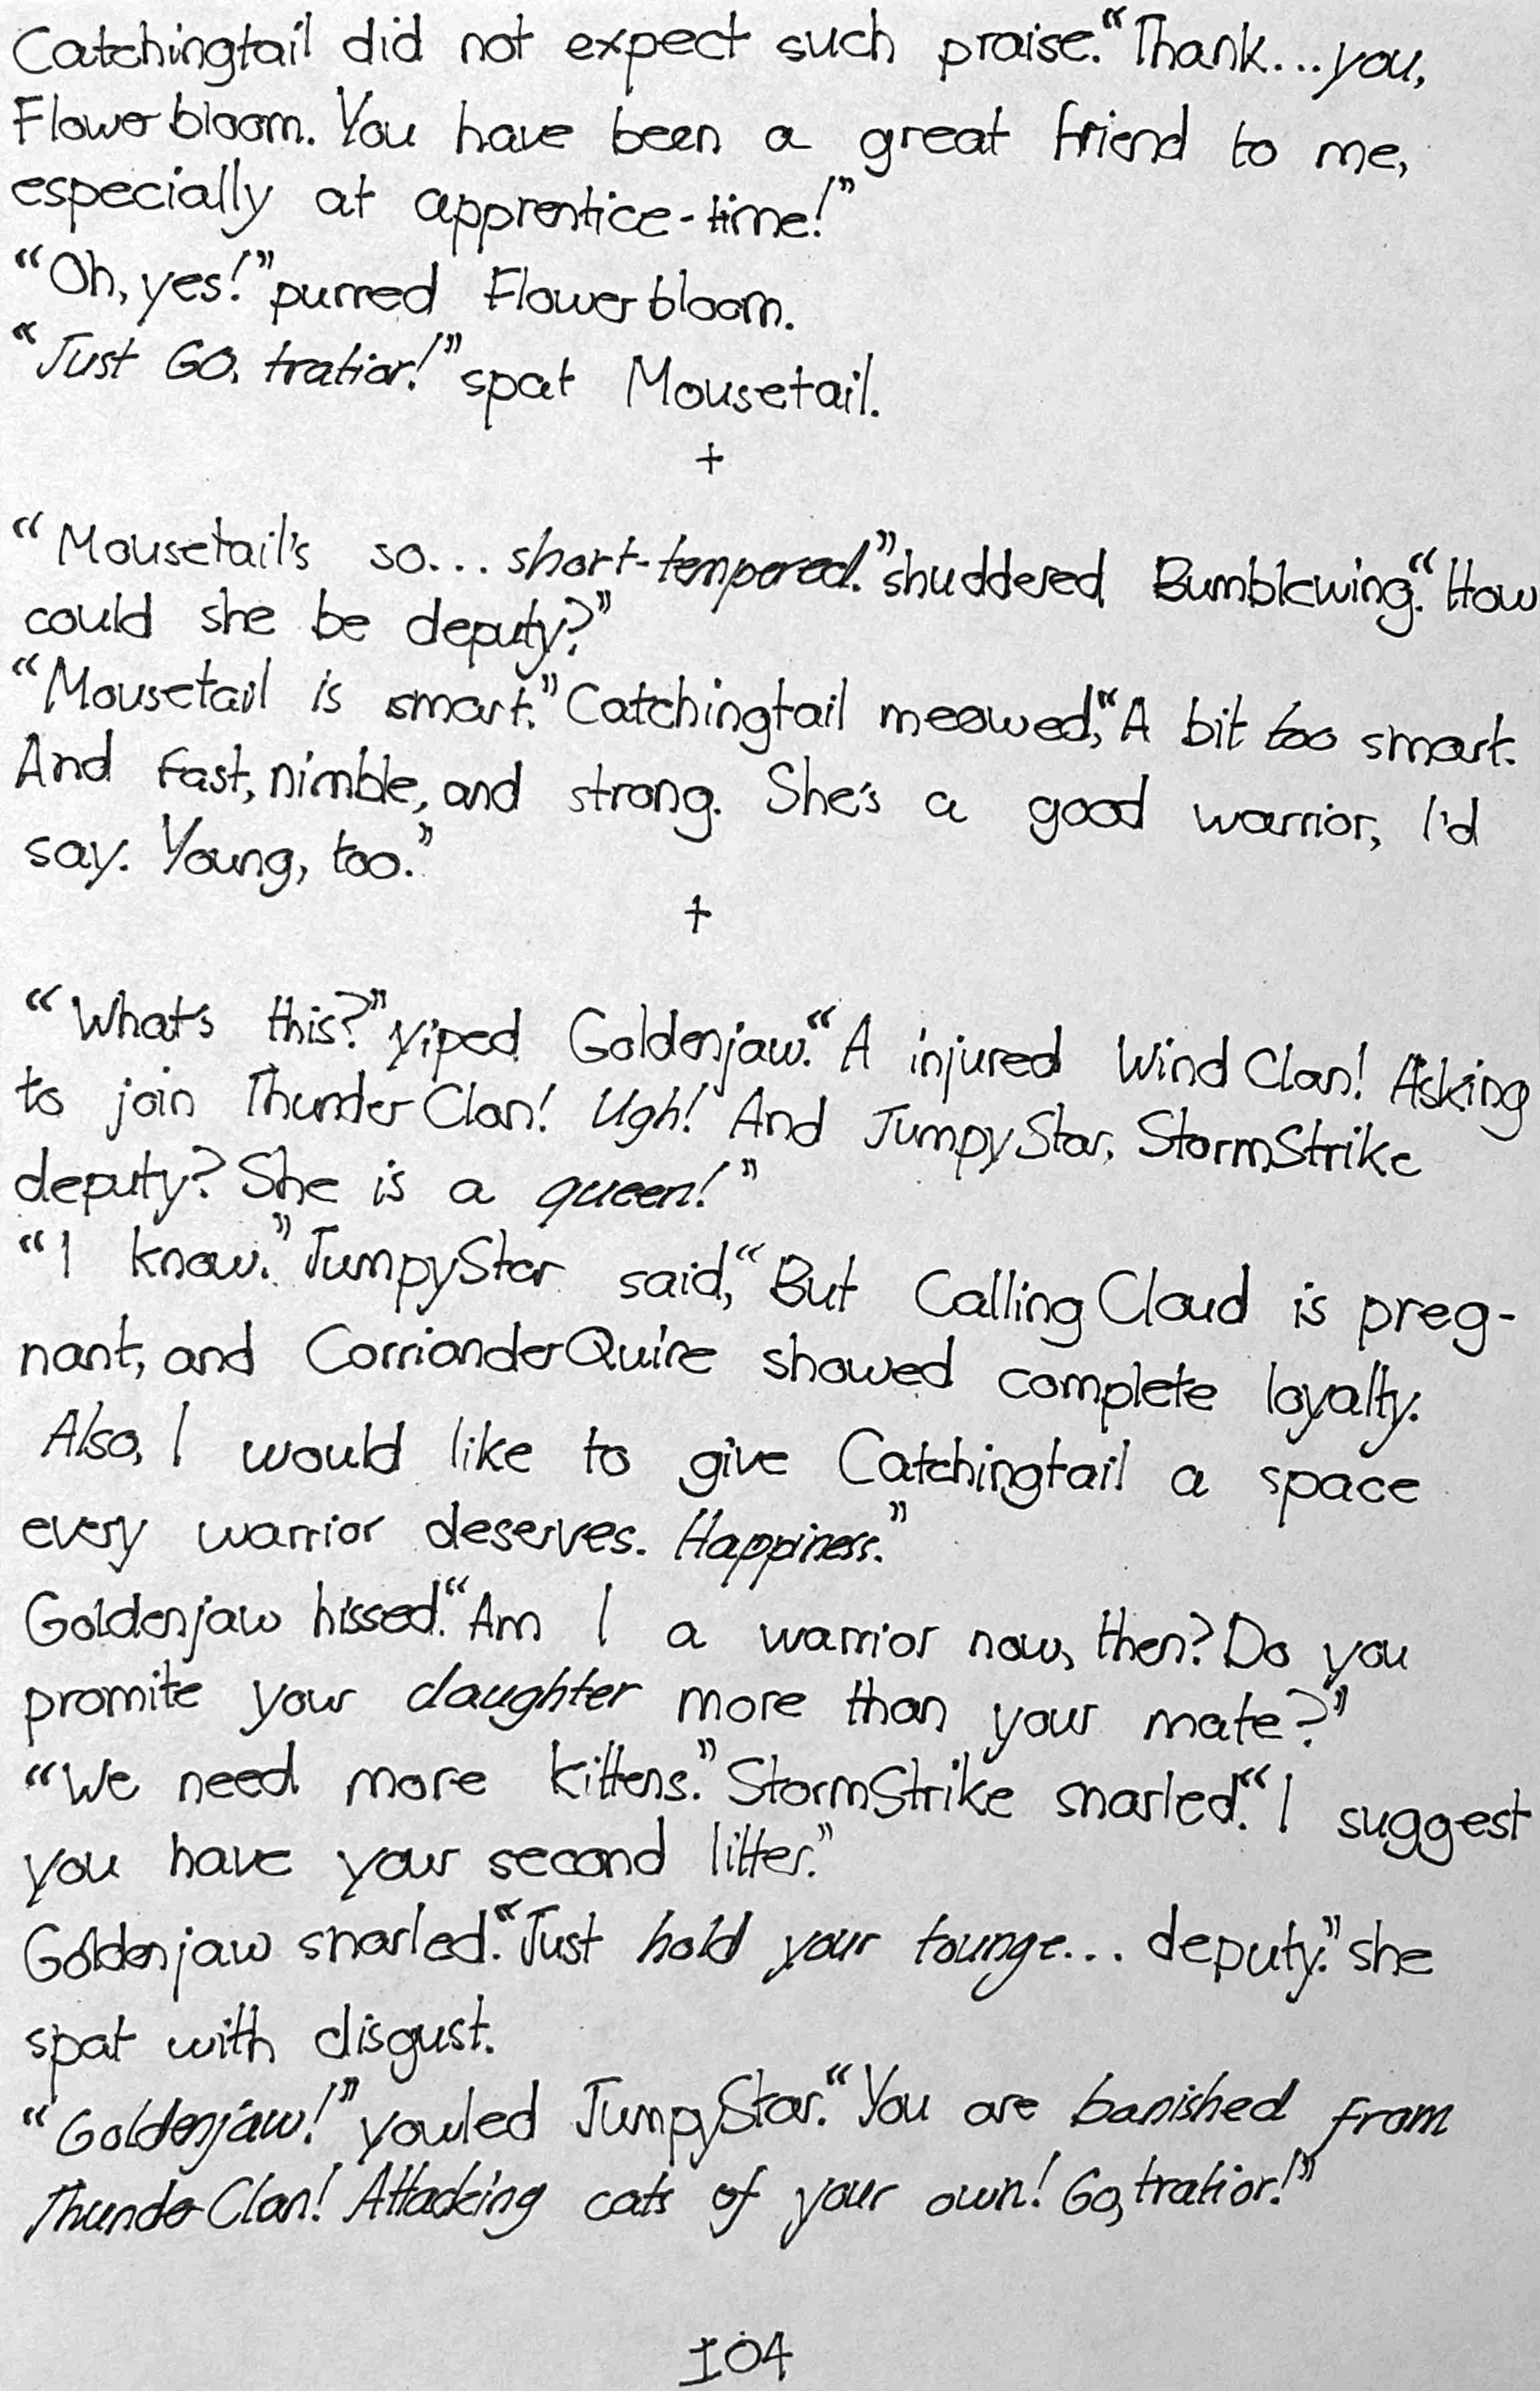 Catchingtail did not expect such praise. “Thank...you,
Flowerbloom. You have been a great friend to me,
especially at apprentice-time!”
“Oh, yes!” purred Flowerbloom.
“Just GO, tratior!” spat Mousetail.
+
“Mousetail's so... short-tempered.” shuddered Bumblewing. “How
could she be deputy?”
“Mousetail is smart.” Catchingtail meowed, “A bit too smart.
And fast, nimble, and strong. She's a good warrior, I'd
say. Young, too.”
+
“What's this?” yiped Goldenjaw. “A injured WindClan! Asking
to join ThunderClan! Ugh! And JumpyStar, StormStrike
deputy? She is a queen!”
“I know.” JumpyStar said, “But CallingCloud is preg-
nant, and CorrianderQuire showed complete loyalty.
Also, I would like to give Catchingtail a space
every warrior deserves. Happiness.”
Goldenjaw hissed. “Am I a warrior now, then? Do you
promite your daughter more than your mate?”
“We need more kittens.” StormStrike snarled. “I suggest
you have your second litter.”
Goldenjaw snarled. “Just hold your tounge... deputy.” she
spat with disgust.
“Goldenjaw!” yowled JumpyStar. “You are banished from
ThunderClan! Attacking cats of your own! Go, tratior!”
104